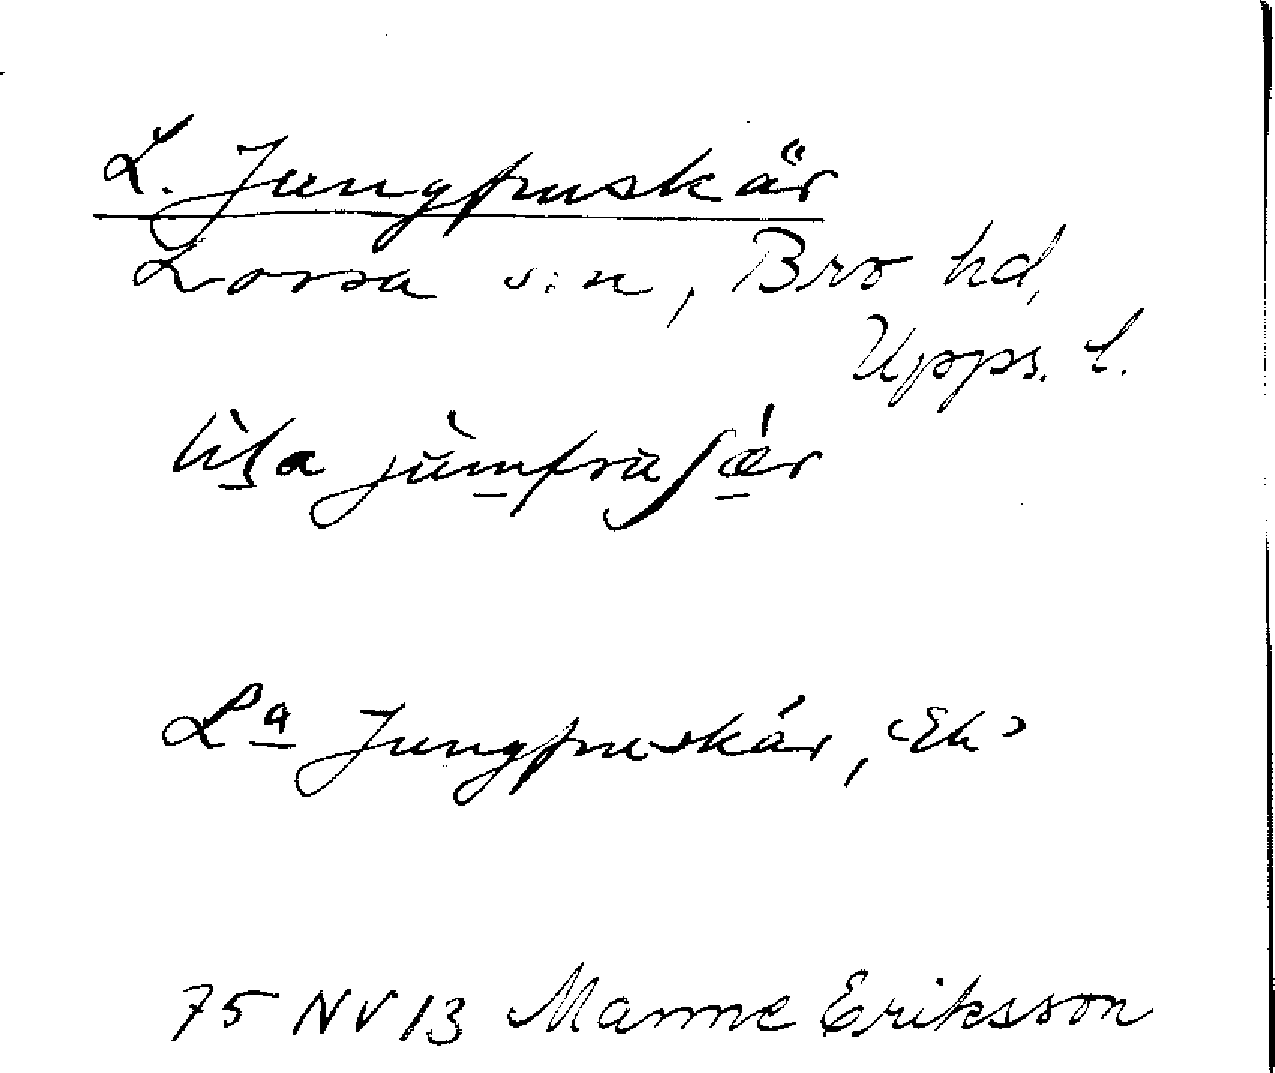 L. Jungfruskär
Lossa s:n, Bro hd,
Upps. l.
lìḷa jùmfruʃǽr
Lª Jungfruskär, ‹Ek›
75 NV 13 Manne Eriksson